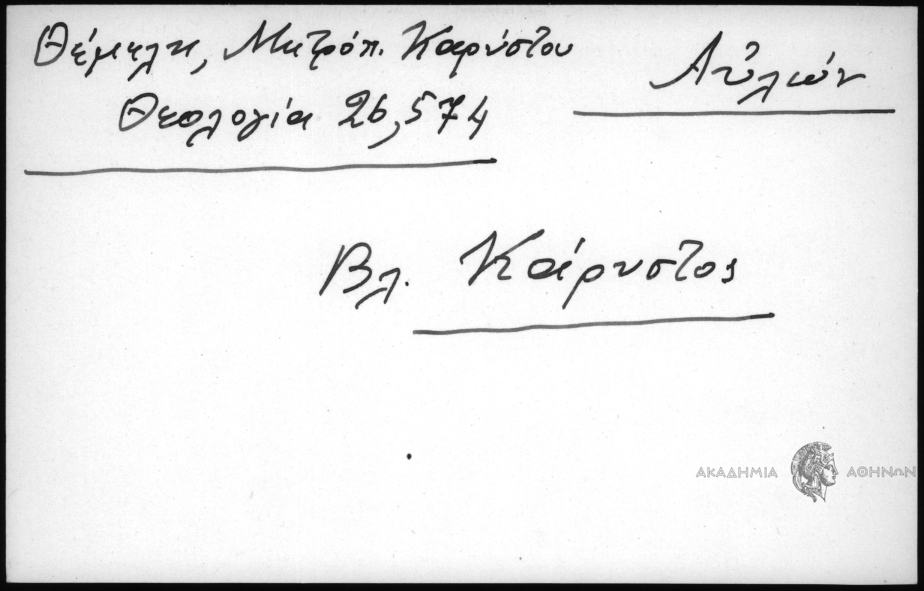 Θέμελη, Μητρόπ. Καρύστου
Θεολογία 26, 574
Αὐλών
Βλ. Κάρυστος
ΑΚΑΔΗΜΙΑ ΑΘΗΝΩΝ